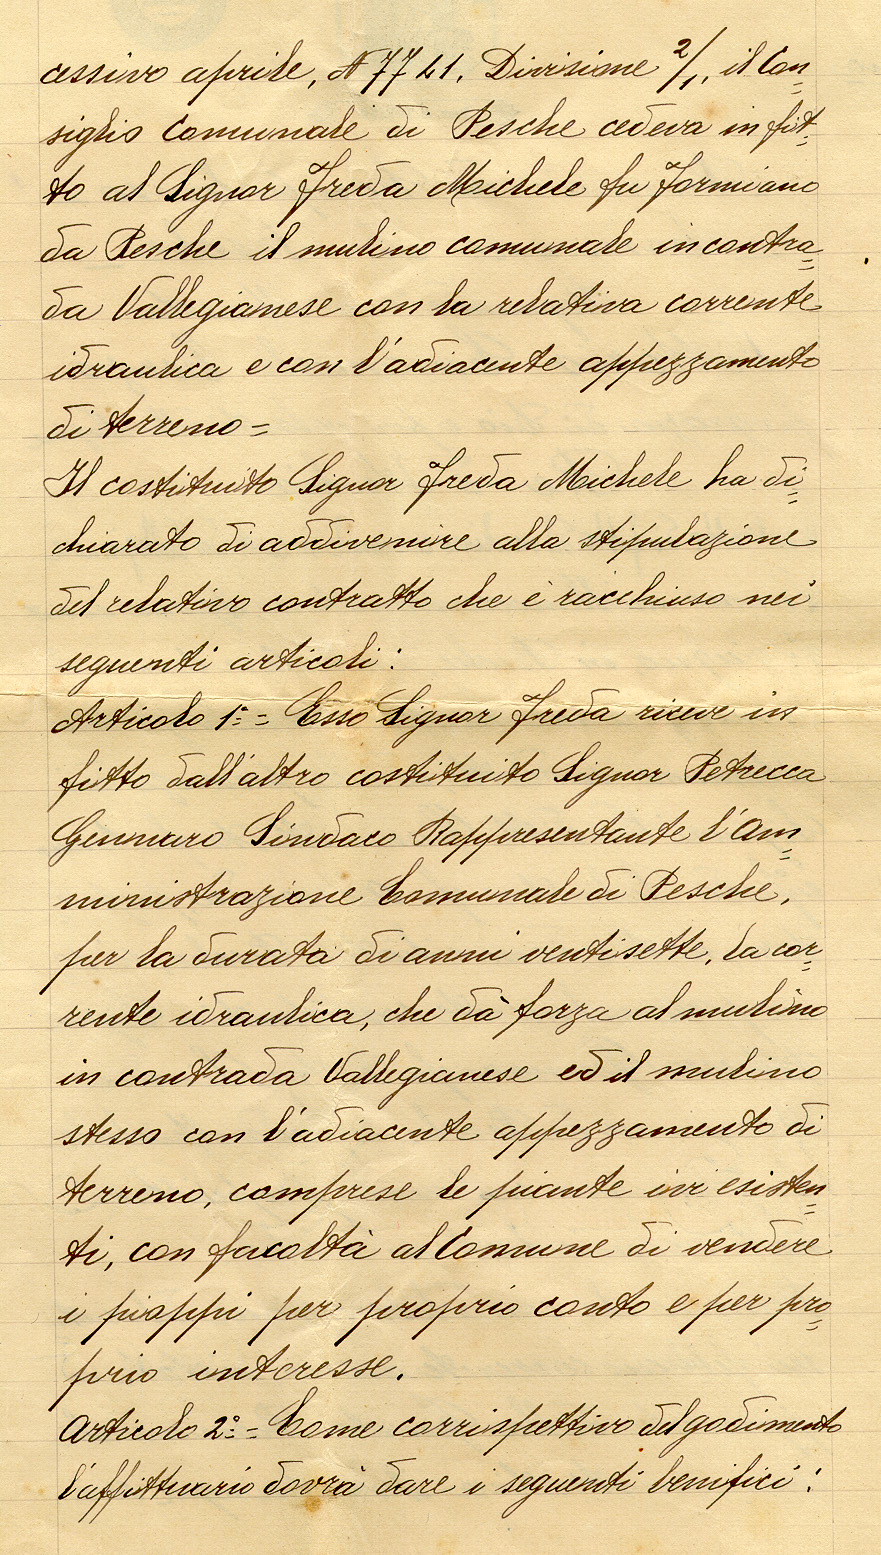 cessivo aprile, N 7721, Divisione 2/1, il Con=
siglio Comunale di Pesche cedeva in fit=
to al Signor Freda Michele fu Formiano
da Pesche il mulino comunale in contra=
da Vallegianese con la relativa corrente
idraulica e con l'adiacente appezzamento
di terreno=
Il costituito Signor Freda Michele ha di=
chiarato di addivenire alla stipulazione
del relativo contratto che è racchiuso nei
seguenti articoli:
Articolo 1°= Esso Signor Freda riceve in
fitto dall'altro costituito Signor Petrecca
Gennaro Sindaco Rappresentante l'Am=
ministrazione Comunale di Pesche,
per la durata di anni ventisette, la cor=
rente idraulica, che dà forza al mulino
in contrada Vallegianese ed il mulino
stesso con l'adiacente appezzamento di
terreno, comprese le piante ivi esisten=
ti, con facoltà al Comune di vendere
i pioppi per proprio conto e per pro=
prio interesse.
Articolo 2°= Come corrispettivo del godimento
l'affittuario dovrà dare i seguenti benifici: